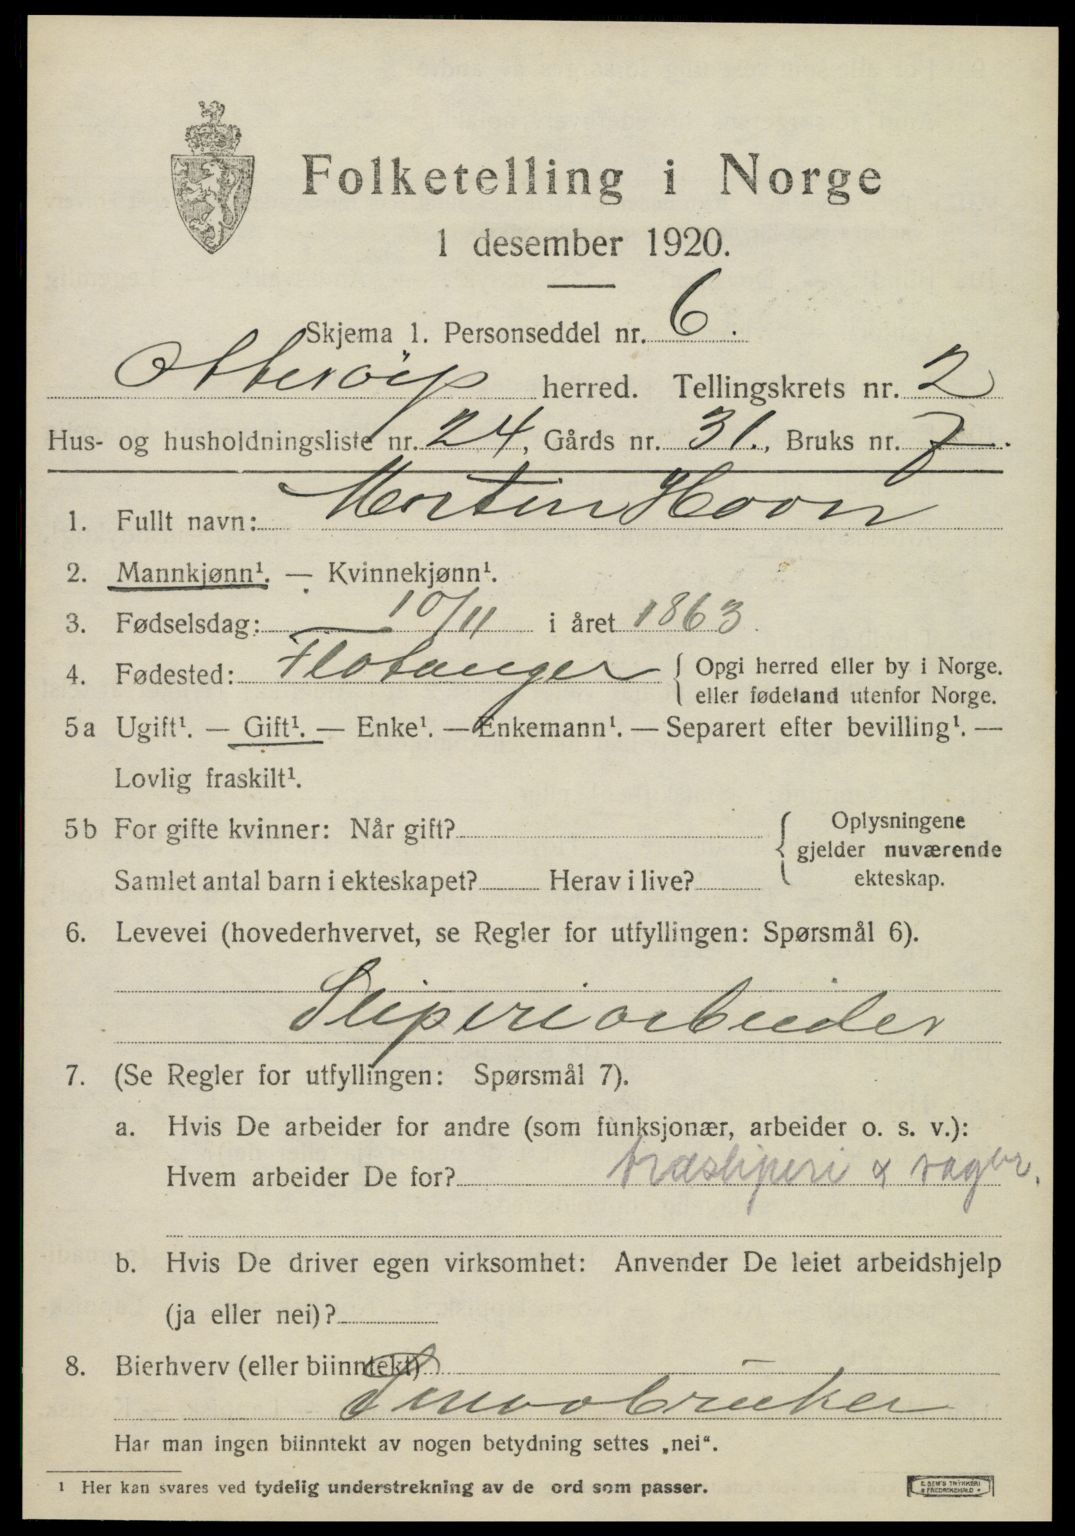 Folketelling i Norge
1 desember 1920.
Skjema 1. Personseddel nr. 6.
Otterøy herred. Tellingskrets nr. 2
Hus- og husholdningsliste nr. 24, Gårds nr. 31., Bruks nr. 7.
1. Fullt navn: Morten Hovn
2. Mannkjønn¹. — Kvinnekjønn¹.
3. Fødselsdag: 10/11 i året 1863.
4. Fødested: Flatanger { Opgi herred eller by i Norge.
eller fødeland utenfor Norge.
5a Ugift¹. — Gift¹. — Enke¹. — Enkemann¹. — Separert efter bevilling¹. —
Lovlig fraskilt¹.
5b For gifte kvinner: Når gift? { Oplysningene
gjelder nuværende
ekteskap.
Samlet antal barn i ekteskapet? Herav i live?
6. Levevei (hovederhvervet, se Regler for utfyllingen: Spørsmål 6).
Sliperiarbeider
7. (Se Regler for utfyllingen: Spørsmål 7).
a. Hvis De arbeider for andre (som funksjonær, arbeider o. s. v.):
Hvem arbeider De for? træsliperi &
b. Hvis De driver egen virksomhet: Anvender De leiet arbeidshjelp
(ja eller nei)?
8. Bierhverv (eller biinntekt)
Smaabruker
Har man ingen biinntekt av nogen betydning settes „nei“.
¹ Her kan svares ved tydelig understrekning av de ord som passer.